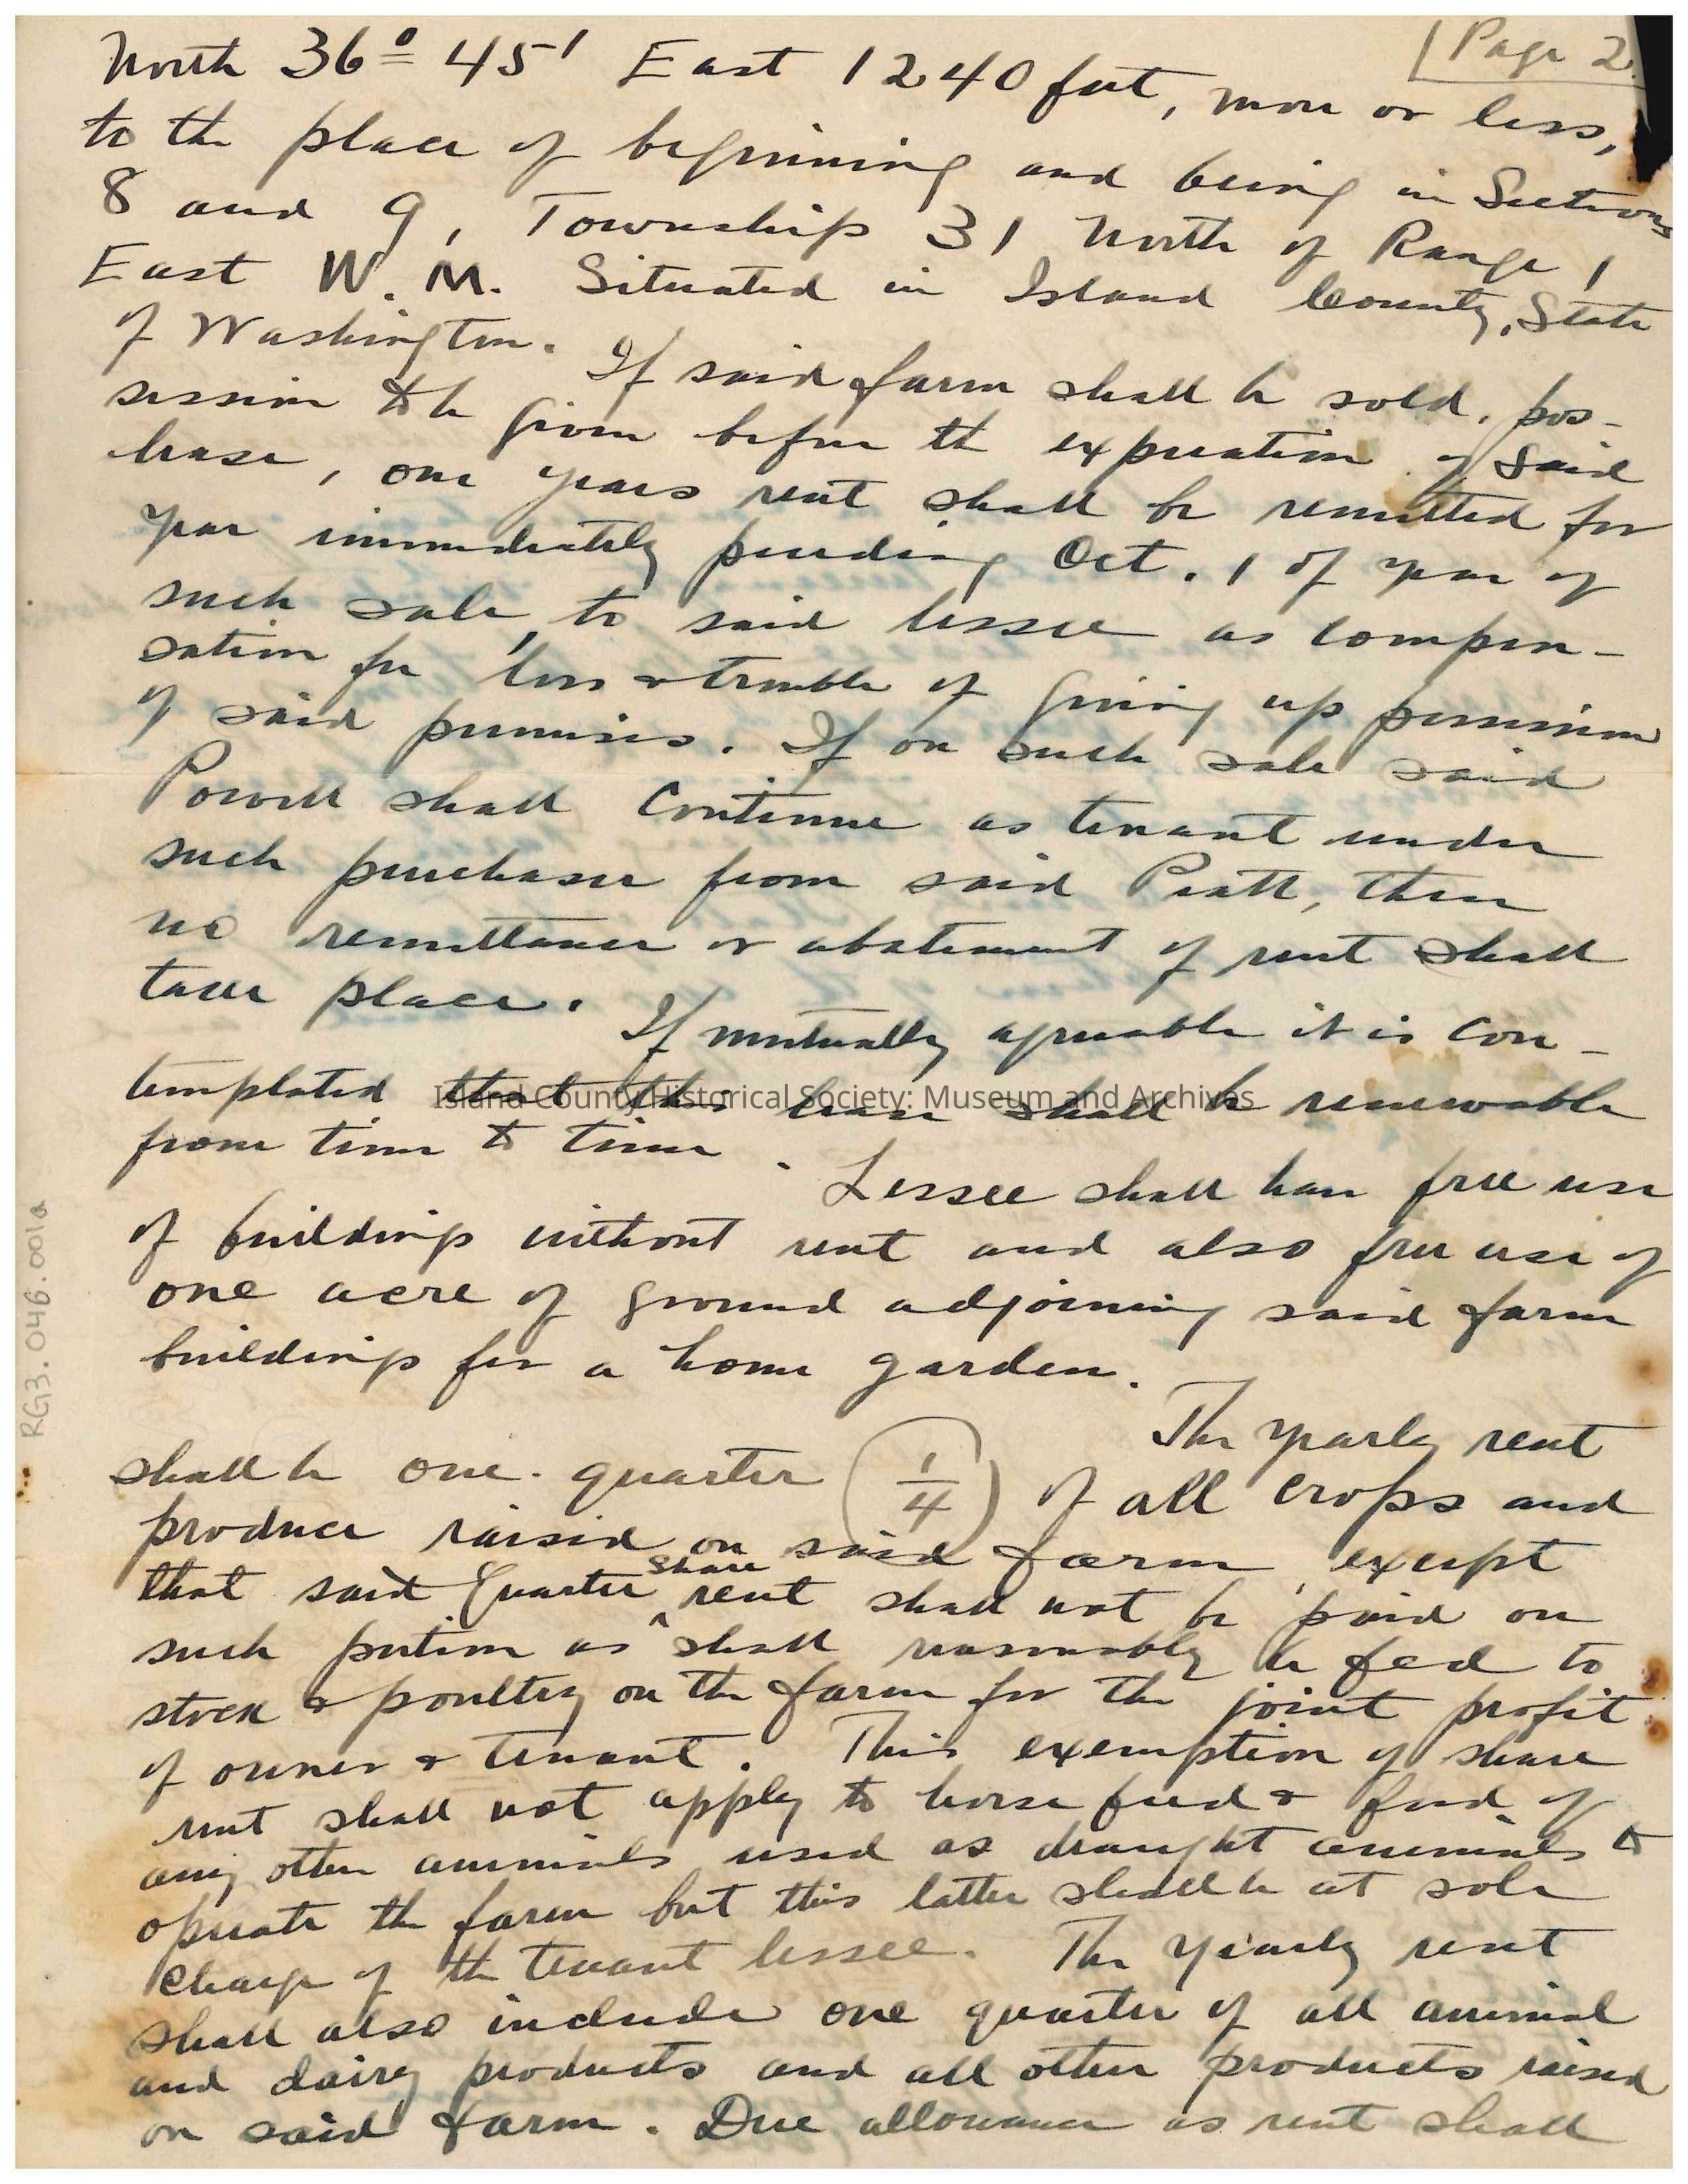 Page 2.
North 36° 45' East 1240 feet, more or less,
to the place of beginning and being in Sections
8 and 9, Township 31 North of Range 1
East W. M. Situated in Island County, State
of Washington. If said farm shall be sold, pos-
session to be given before the expiration of said
lease, one years rent shall be remitted for
year immediately preceding Oct. 1 of year of
such sale, to said lessee as compen-
sation for loss & trouble of giving up possession
of said premises. If on such sale said
Powell shall continue as tenant under
such purchaser from said Pratt, then
no remittance or abatement of rent shall
take place. If mutually agreeable it is con-
templated that this lease shall be renewable
Island County Historical Society: Museum and Archives
from time to time. Lessee shall have free use
of buildings without rent and also free use of
one acre of ground adjoining said farm
buildings for a home garden.
The yearly rent
shall be one-quarter (1/4) of all crops and
produce raised on said farm, except
that said quarter share rent shall not be paid on
such portion as shall reasonably be fed to
stock & poultry on the farm for the joint profit
of owner & tenant. This exemption of share
rent shall not apply to horse feed & feed of
any other animals used as draught animals to
operate the farm but this latter shall be at sole
charge of the tenant lessee. The yearly rent
shall also include one quarter of all animal
and dairy products and all other products raised
on said farm. Due allowance as rent shall
RG3.046.001a